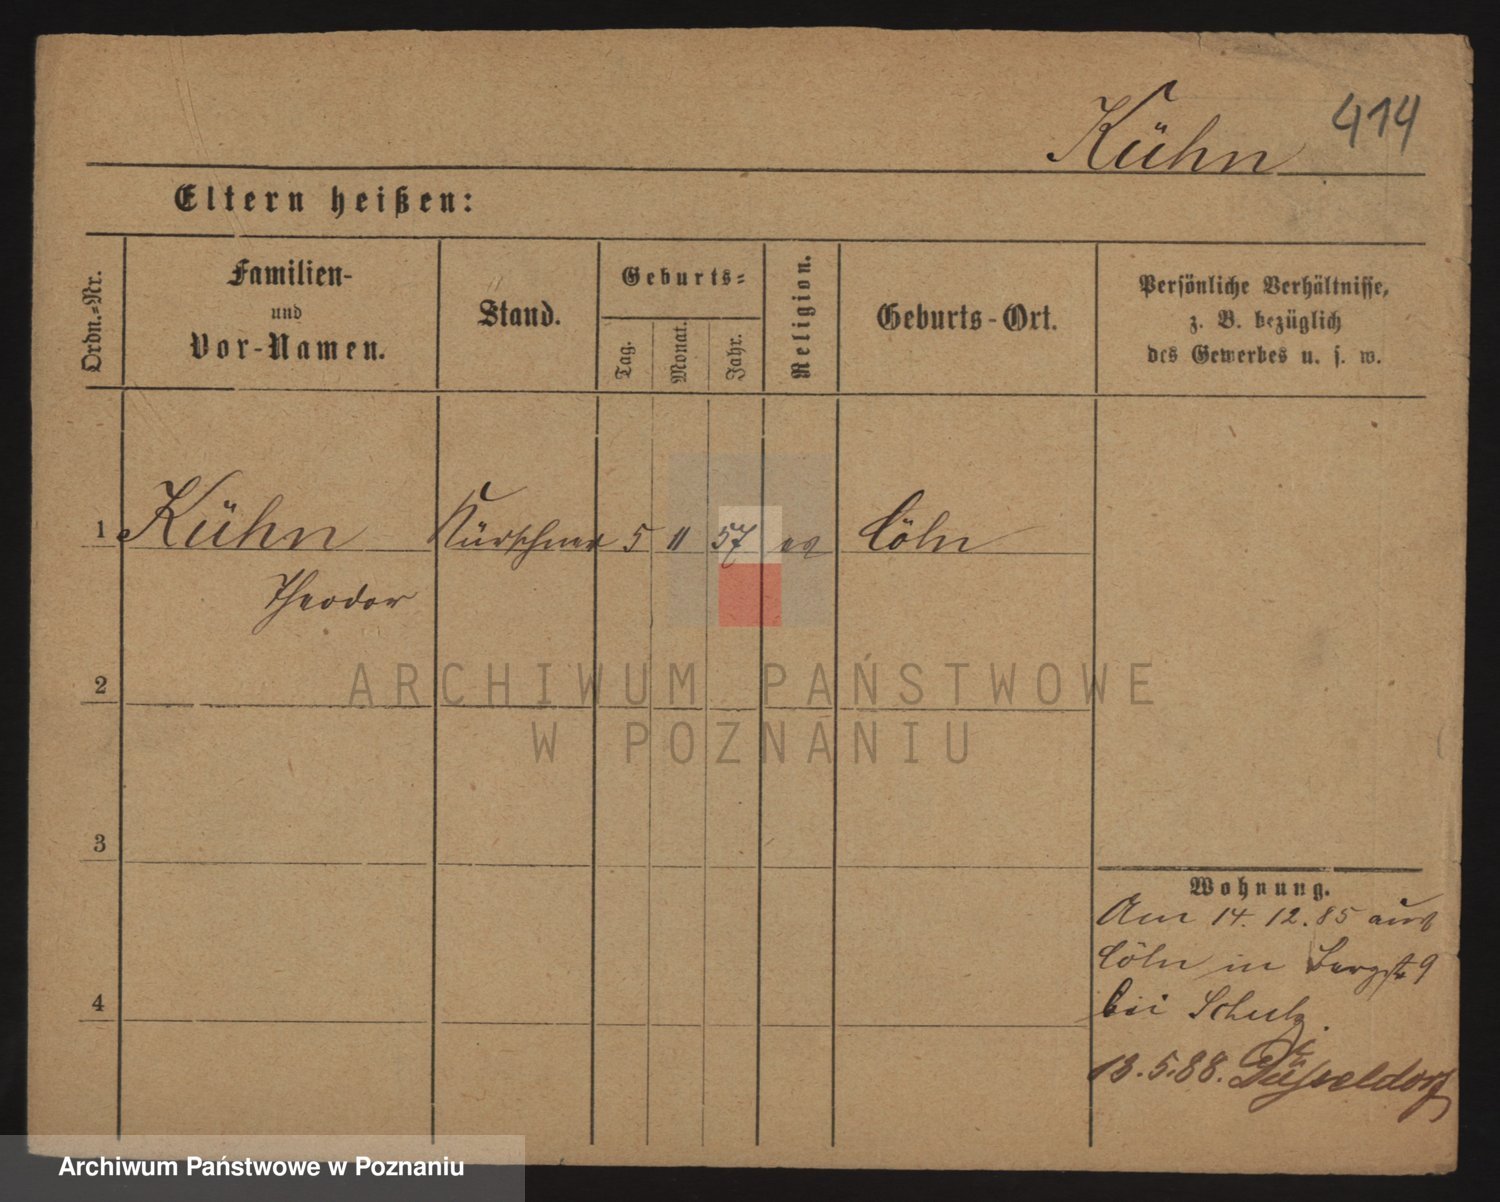 414
Kühn
Eltern heißen:
Ordn.-Nr.
Familien-
und
Vor-Namen.
Stand.
Geburts-
Tag.
Monat.
Jahr.
Religion.
Geburts-Ort.
Persönliche Verhältnisse,
z. B. bezüglich
des Gewerbes u. s. w.
1 Kühn Kürschner 5 11 57 ev Cöln
Theodor
2
3
4
Wohnung.
Am 14. 12. 85 aus
Cöln in Bergstr 9
bei Schulz.
13. 5. 88. Düsseldorf
ARCHIWUM PAŃSTWOWE
W POZNANIU
Archiwum Państwowe w Poznaniu